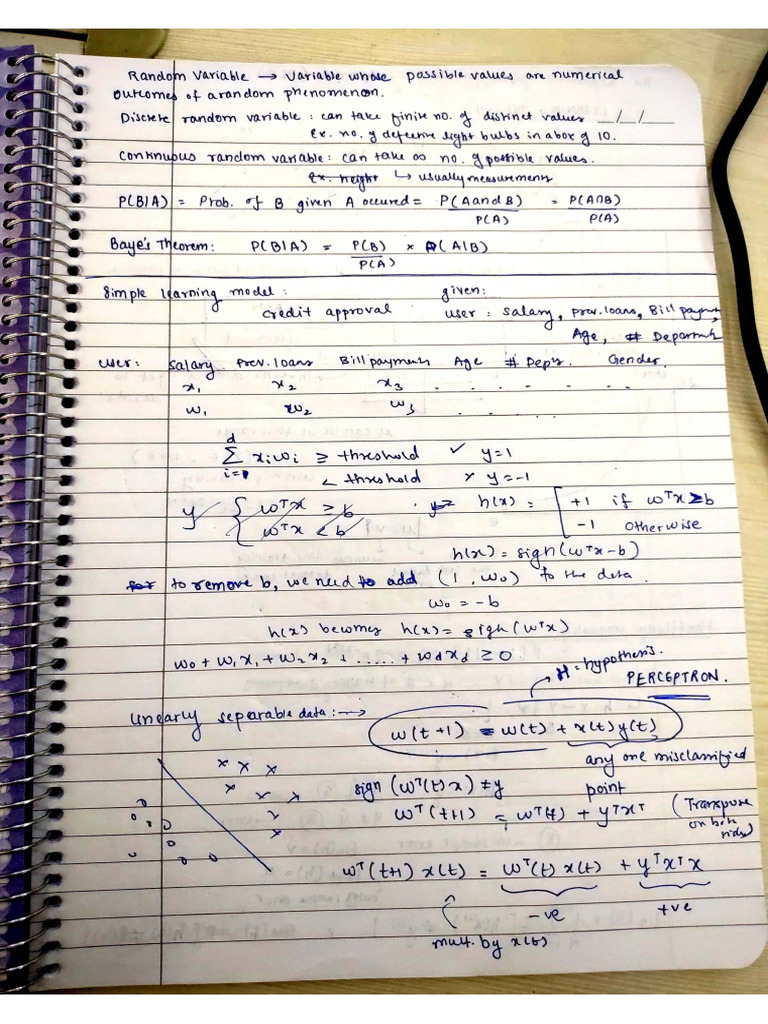 Random Variable → Variable whose possible values are numerical
outcomes of a random phenomenon.
Discrete random variable : can take finite no. of distinct values __/__/____
Ex. no. of defective light bulbs in a box of 10.
Continuous random variable: can take ∞ no. of possible values.
Ex. height ↳ usually measurements
P(B|A) = Prob. of B given A occured = P(A and B)/P(A) = P(A∩B)/P(A)
Baye's Theorem: P(B|A) = P(B)/P(A) × P(A|B)
Simple learning model : given:
credit approval user : salary, prev. loans, Bill payments,
Age, # Department
user: Salary Prev. loans Bill payments Age # Dep's. Gender.
x₁ x₂ x₃ . . . . . .
w₁ w₂ w₃ . . . . . .
d
Σ xᵢwᵢ ≥ threshold ✓ y=1
i=0 < threshold × y=-1
y { wᵀx ≥ b y= h(x) = [ +1 if wᵀx ≥ b
wᵀx < b -1 otherwise
h(x) = sign(wᵀx-b)
for to remove b, we need to add (1, w₀) to the data.
w₀ = -b
h(x) becomes h(x) = sign(wᵀx)
w₀ + w₁x₁ + w₂x₂ + ..... + w_d x_d ≥ 0.
H = hypothesis.
PERCEPTRON.
Linearly separable data : →
w(t+1) = w(t) + x(t)y(t)
any one misclassified
point
sign (wᵀ(t)x) ≠ y
wᵀ(t+1) = wᵀ(t) + yᵀxᵀ (Transpose
on both
sides)
wᵀ(t+1) x(t) = wᵀ(t) x(t) + yᵀxᵀx
-ve +ve
mult. by x(t)